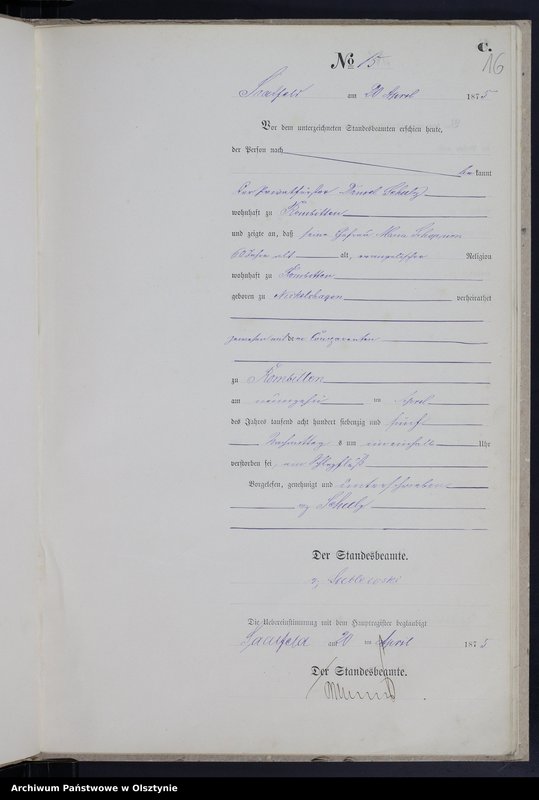 C.
16
No 15
Saalfeld am 20 April 1875
Vor dem unterzeichneten Standesbeamten erschien heute,
der Person nach
bekannt
der Scholz
wohnhaft zu Kombitten
und zeigte an, daß seine Ehefrau
60 Jahre alt alt, evangelischer Religion
wohnhaft zu Kombitten
geboren zu Nickelshagen verheirathet
gewesen mit dem Comparenten
zu Kombitten
am neunzehn ten April
des Jahres tausend acht hundert siebenzig und fünf
Nachmittag s um Uhr
verstorben sei, am Schlagfluß
Vorgelesen, genehmigt und unterschrieben
gz Scholz
Der Standesbeamte.
Die Uebereinstimmung mit dem Hauptregister beglaubigt
Saalfeld am 20 ten April 1875
Der Standesbeamte.
Archiwum Państwowe w Olsztynie